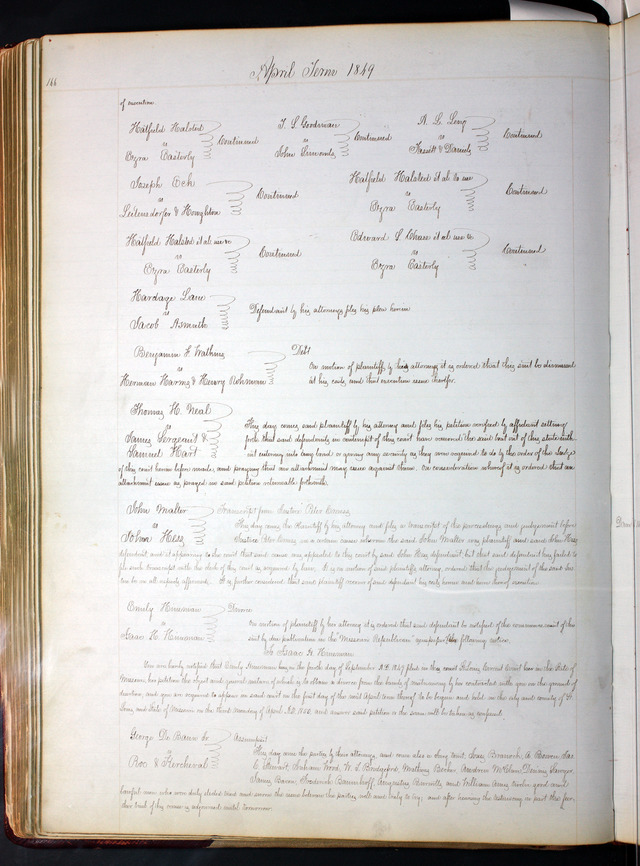 166
April Term 1849
of execution
Hatfield Halsted
vs
Ezra Easterly
Continued
T. S. Goodman
vs
John Simonds
Continued
A. L. Levy
vs
Continued
Joseph Eck
vs
Leitensdorfer & Houghton
Continued
Hatfield Halsted et al to use
vs
Ezra Easterly
Continued
Hatfield Halsted et al use &c
vs
Ezra Easterly
Continued
Edward S. Chase et al use &c
vs
Ezra Easterly
Continued
Hardage Lane
vs
Jacob
Defendant by his attorney files his plea herein
Benjamin F. Watkins
vs
Herman Harms & Henry Rohrman
Debt
On motion of plaintiff by his attorney it is ordered that this suit be dismissed
at his costs, and that execution issue therefor.
Thomas H. Neal
vs
James Sergent &
Samuel Hart
This day comes said plaintiff by his attorney and files his petition verified by affidavit setting
forth that said defendants in contempt of this court have removed the said boat out of this state with
out entering into any bond or giving any security as they were required to do by the order of the Judge
of this court herein before made, and praying that an attachment may issue against them. On consideration whereof it is ordered that an
attachment issue as prayed in said petition returnable forthwith.
John Malter
vs
John Hess
Transcript from Justice Peter
This day comes the Plaintiff by his attorney and files a transcript of the proceedings and judgment before
Justice Peter in a certain cause wherein the said John Malter was plaintiff and said John Hess
defendant, and it appearing to the court that said cause was appealed to this court by said John Hess defendant but that said defendant has failed to
file such transcript with the clerk of this court as required by law. It is on motion of said plaintiff's attorney, ordered that the judgment of the said Jus
tice be in all respects affirmed. It is further considered that said plaintiff recover of said defendant his costs herein and have thereof execution
Emily Hinsman
vs
Isaac H. Hinsman
Divorce
On motion of plaintiff by her attorney it is ordered that said defendant be notified of the commencement of this
suit by due publication in the Missouri Republican newspaper the following notice.
To Isaac H. Hinsman
You are hereby notified that Emily Hinsman has, on the fourth day of September A.D. 1847 filed in the court Saint Louis Circuit Court here in the State of
Missouri, her petition the object and general nature of which is to obtain a divorce from the bonds of matrimony by her contracted with you on the ground of
desertion, and you are required to appear in said court on the first day of the next April term thereof to be begun and held in the city and county of St.
Louis and State of Missouri on the third Monday of April A.D. 1850. and answer said petition or the same will be taken as confessed
George De Baun Sr
vs
Roe & Kercheval
Assumpsit
This day come the parties by their attorneys, and come also a Jury to wit, Isaac Branock, A. Bowen, Jas
C. Stewart, Graham Wood, W. S. Bradford, Mathias Becker, Andrew McClain, Dennis
James Bacon, Frederick Baumhoff, Augustus and William twelve good and
lawful men who were duly elected tried and sworn the issues between the parties well and truly to try; and after hearing the testimony in part the fur-
ther trial of the cause is adjourned until tomorrow